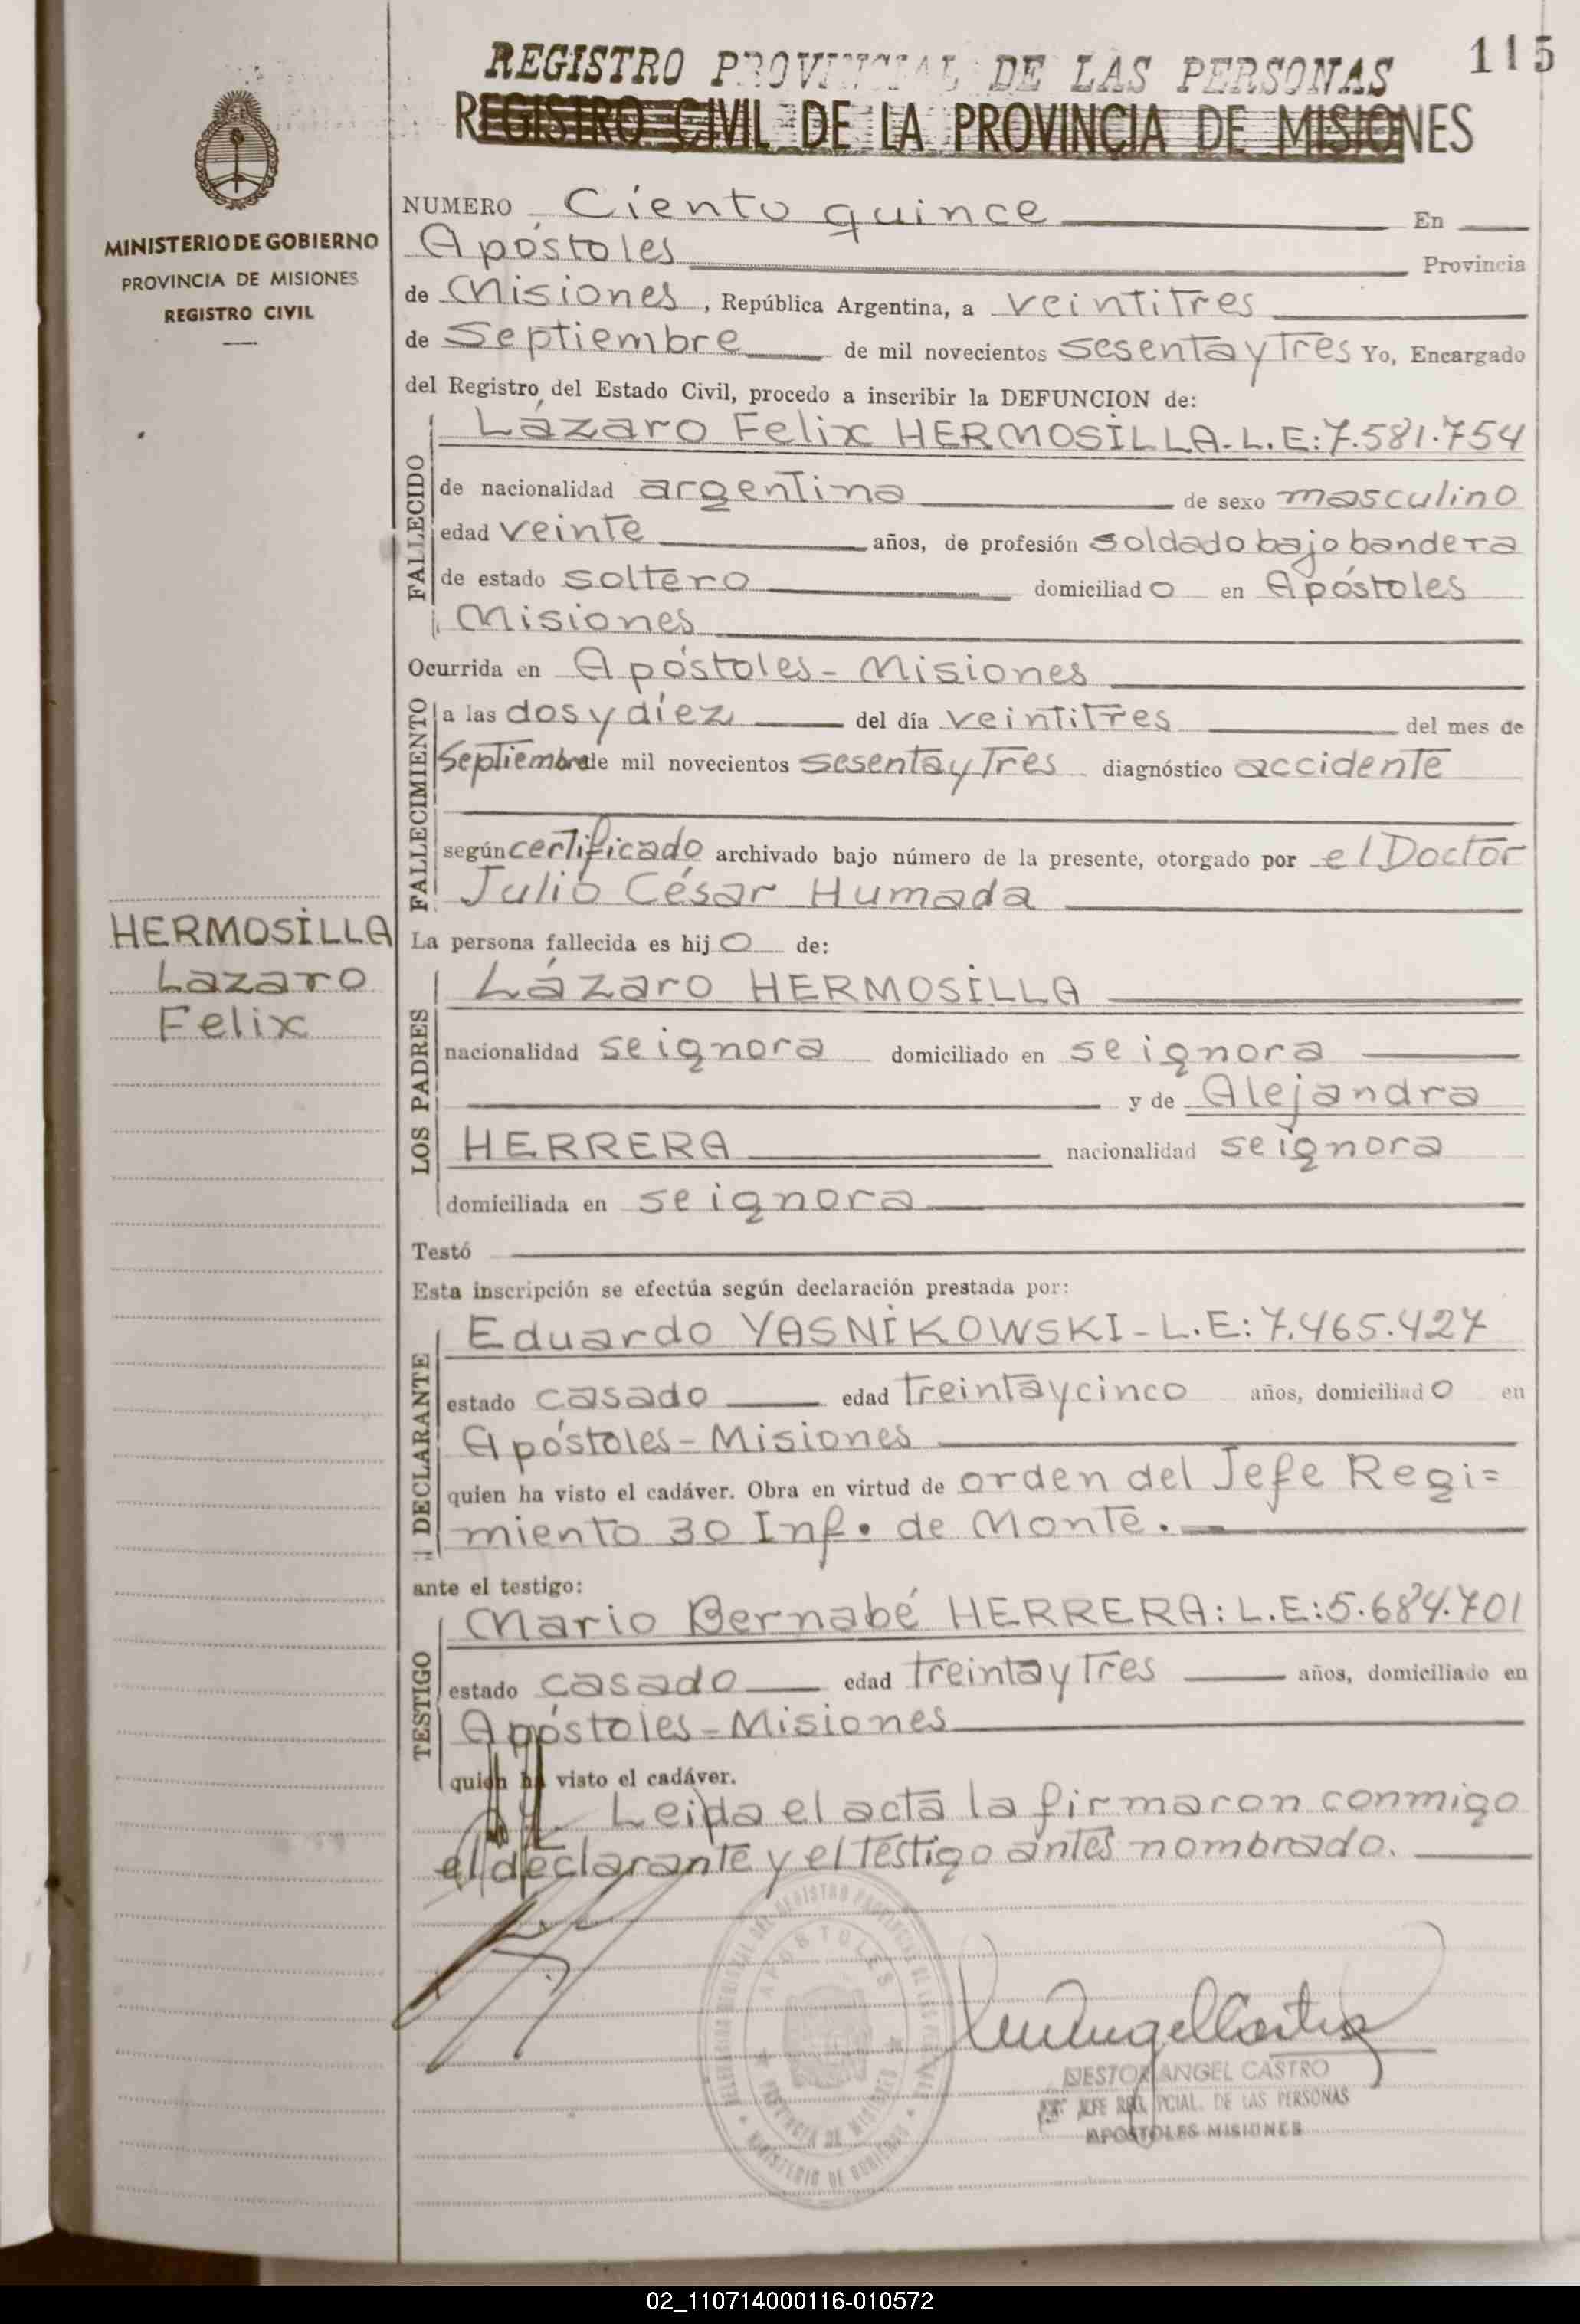 115
REGISTRO PROVINCIAL DE LAS PERSONAS
REGISTRO CIVIL DE LA PROVINCIA DE MISIONES
MINISTERIO DE GOBIERNO
PROVINCIA DE MISIONES
REGISTRO CIVIL
NUMERO Ciento quince En
Apóstoles Provincia
de Misiones, República Argentina, a veintitres
de Septiembre de mil novecientos sesenta y tres Yo, Encargado
del Registro del Estado Civil, procedo a inscribir la DEFUNCION de:
FALLECIDO
Lázaro Felix HERMOSILLA.L.E:7.581.754
de nacionalidad argentina de sexo masculino
edad veinte años, de profesión soldado bajo bandera
de estado soltero domiciliado en Apóstoles
Misiones
Ocurrida en Apóstoles - Misiones
FALLECIMIENTO
a las dos y díez del día veintitres del mes de
Septiembre de mil novecientos sesenta y tres diagnóstico accidente
según certificado archivado bajo número de la presente, otorgado por el Doctor
Julio César Humada
HERMOSILLA
Lazaro
Felix
La persona fallecida es hijo de:
LOS PADRES
Lázaro HERMOSILLA
nacionalidad se ignora domiciliado en se ignora
y de Alejandra
HERRERA nacionalidad se ignora
domiciliada en se ignora
Testó
Esta inscripción se efectúa según declaración prestada por:
DECLARANTE
Eduardo YASNIKOWSKI - L.E:7.465.427
estado casado edad treinta y cinco años, domiciliado en
Apóstoles - Misiones
quien ha visto el cadáver. Obra en virtud de orden del Jefe Regi=
miento 30 Inf. de Monte.
ante el testigo:
TESTIGO
Mario Bernabé HERRERA: L.E:5.684.701
estado casado edad treinta y tres años, domiciliado en
Apóstoles - Misiones
quien ha visto el cadáver.
Leida el acta la firmaron conmigo
el declarante y el testigo antes nombrado.
REGISTRO PROVINCIAL DE LAS PERSONAS
APOSTOLES
PROVINCIA DE MISIONES
MINISTERIO DE GOBIERNO
NESTOR ANGEL CASTRO
JEFE REG. PCIAL. DE LAS PERSONAS
APOSTOLES MISIONES
02_110714000116-010572